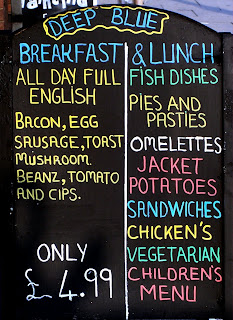 DEEP BLUE
BREAKFAST & LUNCH
ALL DAY FULL
ENGLISH
BACON, EGG
SAUSAGE, TOAST
MUSHROOM.
BEANZ, TOMATO
AND CIPS.
ONLY
£4.99
FISH DISHES
PIES AND
PASTIES
OMELETTES
JACKET
POTATOES
SANDWICHES
CHICKEN'S
VEGETARIAN
CHILDREN'S
MENU